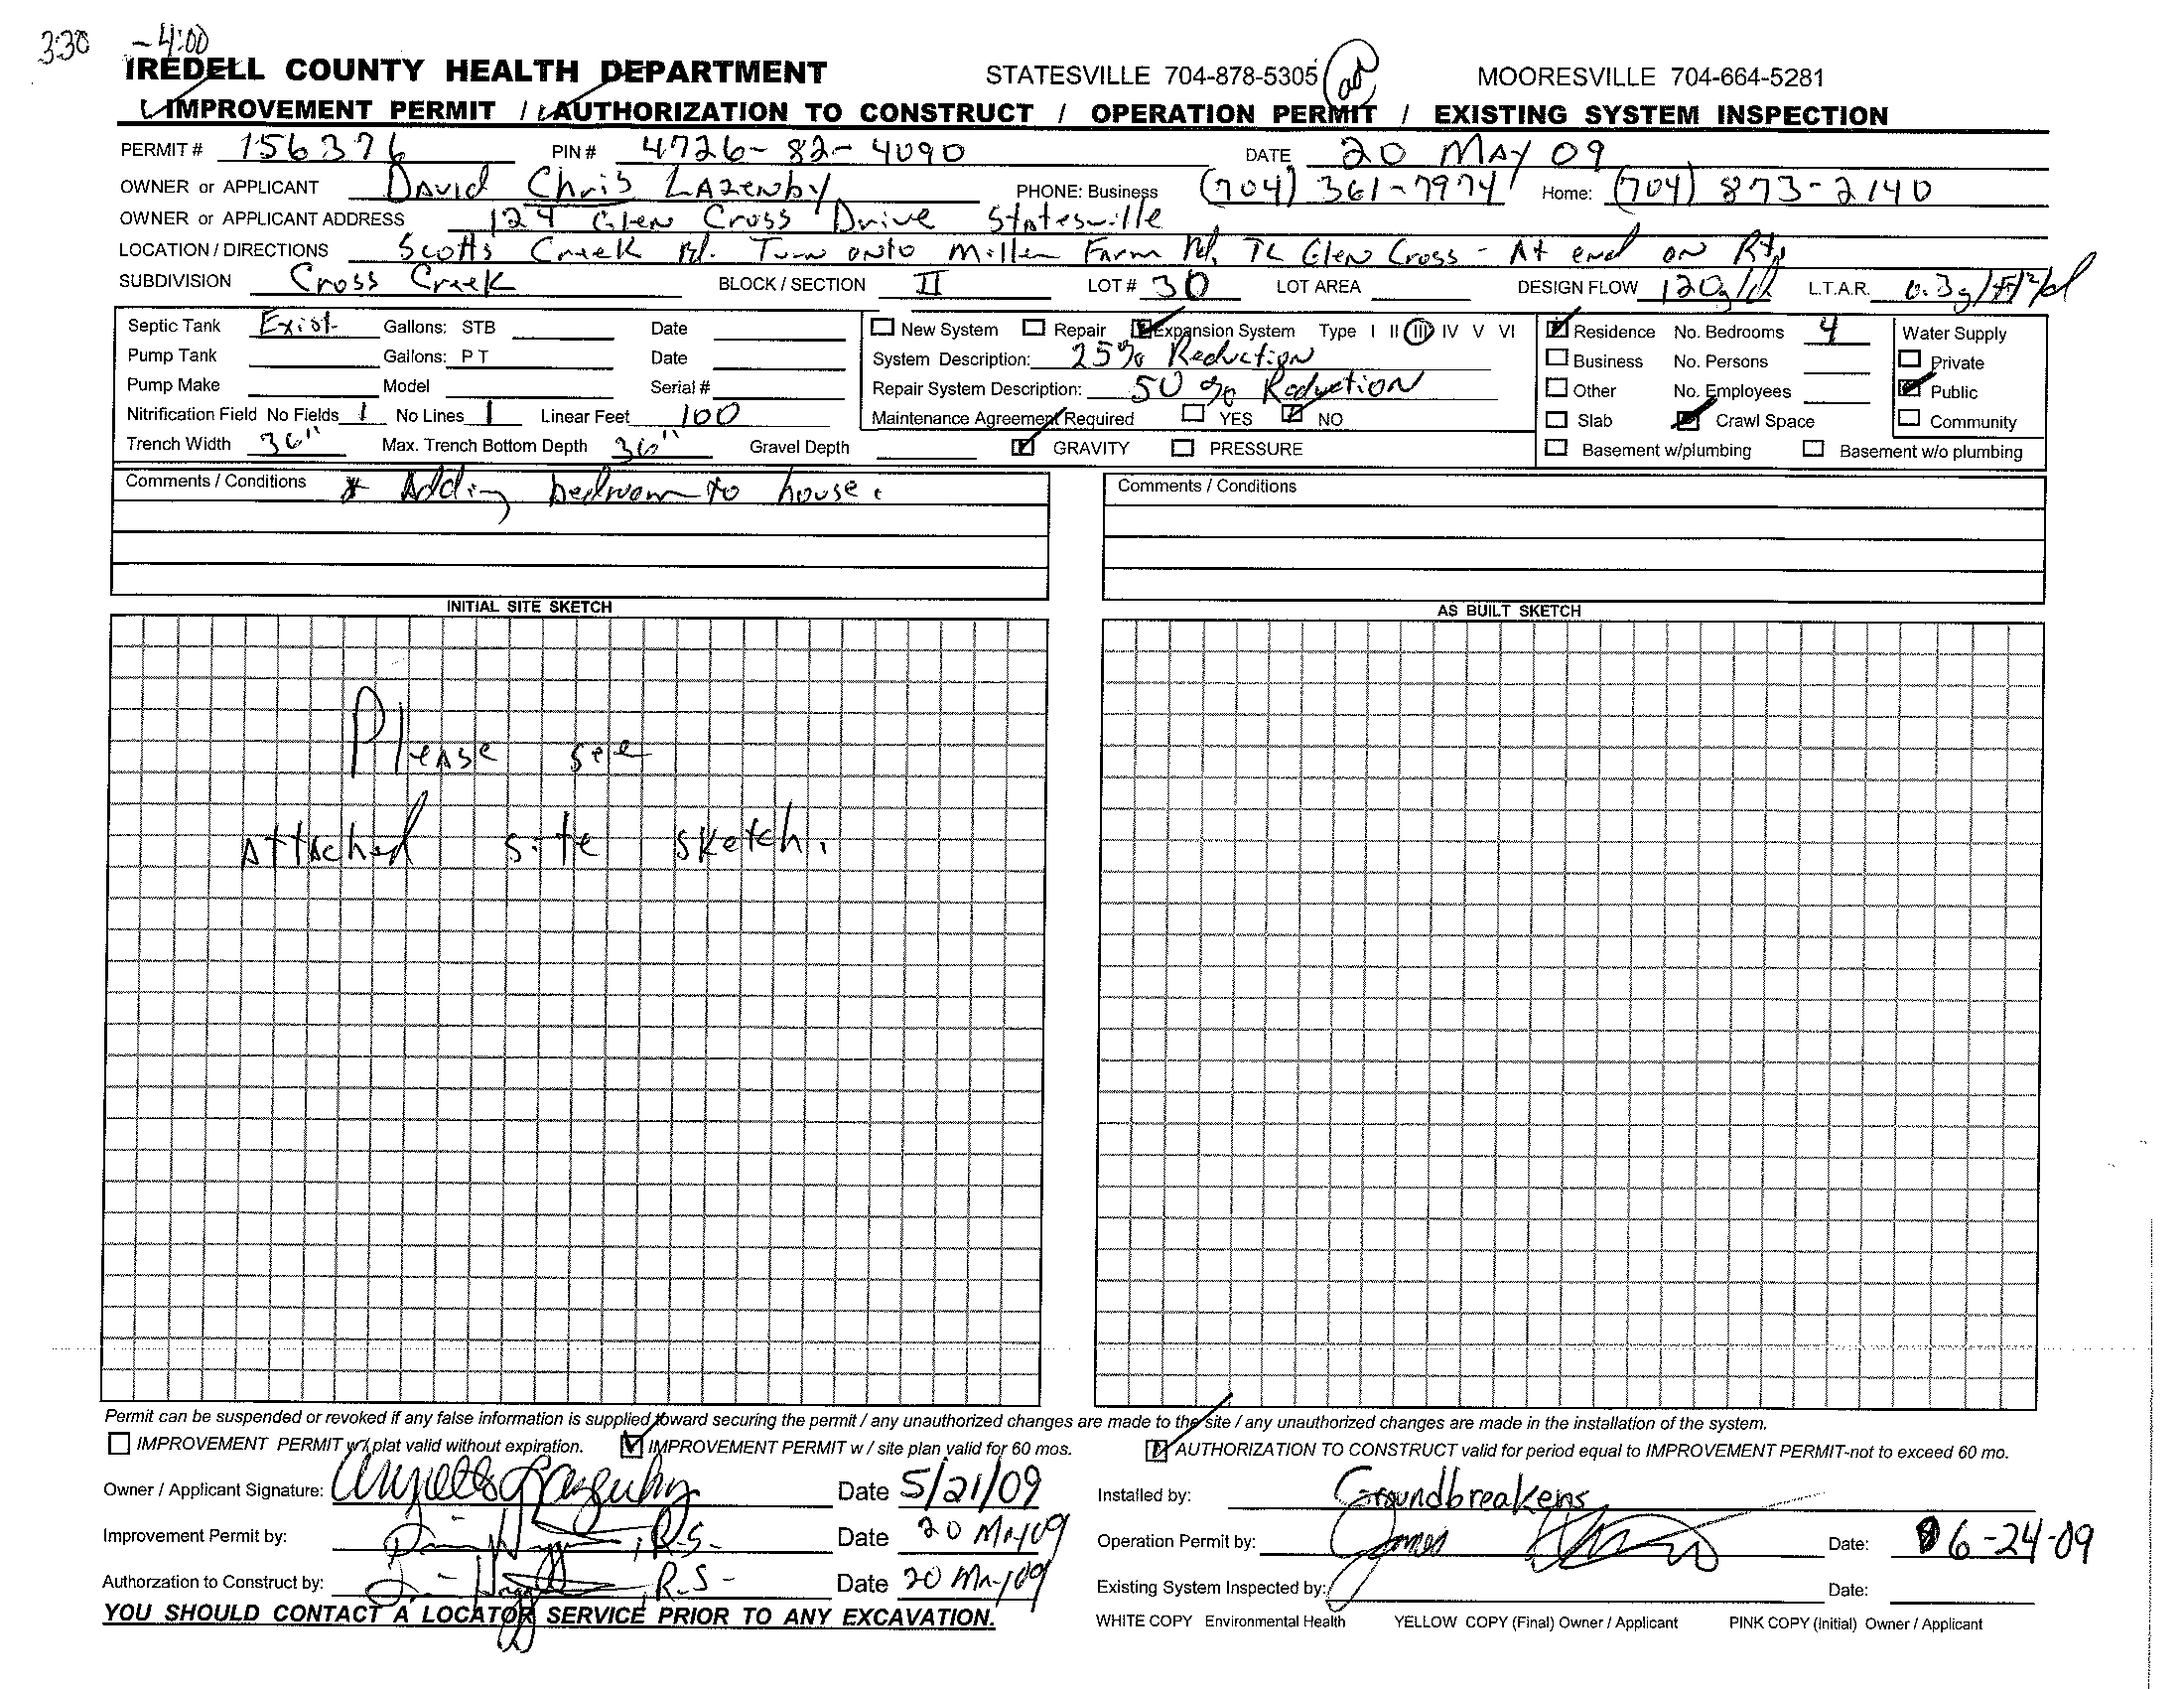 3:30 - 4:00
IREDELL COUNTY HEALTH DEPARTMENT STATESVILLE 704-878-5305 MOORESVILLE 704-664-5281
IMPROVEMENT PERMIT / AUTHORIZATION TO CONSTRUCT / OPERATION PERMIT / EXISTING SYSTEM INSPECTION
PERMIT # 156376 PIN # 4726-82-4090 DATE 20 MAY 09
OWNER or APPLICANT David Chris LAZENBY PHONE: Business (704) 361-7974 Home: (704) 873-2140
OWNER or APPLICANT ADDRESS 124 Glen Cross Drive Statesville
LOCATION / DIRECTIONS Scotts Creek Rd. Turn onto Miller Farm Rd, TL Glen Cross - At end on Rt,
SUBDIVISION Cross Creek BLOCK / SECTION II LOT # 30 LOT AREA DESIGN FLOW 120g/d L.T.A.R. 0.3g/ft²/d
Septic Tank Exist. Gallons: STB Date New System Repair Expansion System Type I II III IV V VI Residence No. Bedrooms 4 Water Supply
Pump Tank Gallons: P T Date System Description: 25% Reduction Business No. Persons Private
Pump Make Model Serial # Repair System Description: 50 % Reduction Other No. Employees Public
Nitrification Field No Fields 1 No Lines 1 Linear Feet 100 Maintenance Agreement Required YES NO Slab Crawl Space Community
Trench Width 36" Max. Trench Bottom Depth 36" Gravel Depth GRAVITY PRESSURE Basement w/plumbing Basement w/o plumbing
Comments / Conditions * Adding bedroom to house. Comments / Conditions
INITIAL SITE SKETCH AS BUILT SKETCH
Please see
attached site sketch.
Permit can be suspended or revoked if any false information is supplied toward securing the permit / any unauthorized changes are made to the site / any unauthorized changes are made in the installation of the system.
IMPROVEMENT PERMIT w / plat valid without expiration. IMPROVEMENT PERMIT w / site plan valid for 60 mos. AUTHORIZATION TO CONSTRUCT valid for period equal to IMPROVEMENT PERMIT-not to exceed 60 mo.
Owner / Applicant Signature: Date 5/21/09 Installed by: Groundbreakers
Improvement Permit by: , R.S. Date 20 May 09 Operation Permit by: James Date: 6-24-09
Authorzation to Construct by: , R.S. Date 20 May 09 Existing System Inspected by: Date:
YOU SHOULD CONTACT A LOCATOR SERVICE PRIOR TO ANY EXCAVATION. WHITE COPY Environmental Health YELLOW COPY (Final) Owner / Applicant PINK COPY (Initial) Owner / Applicant